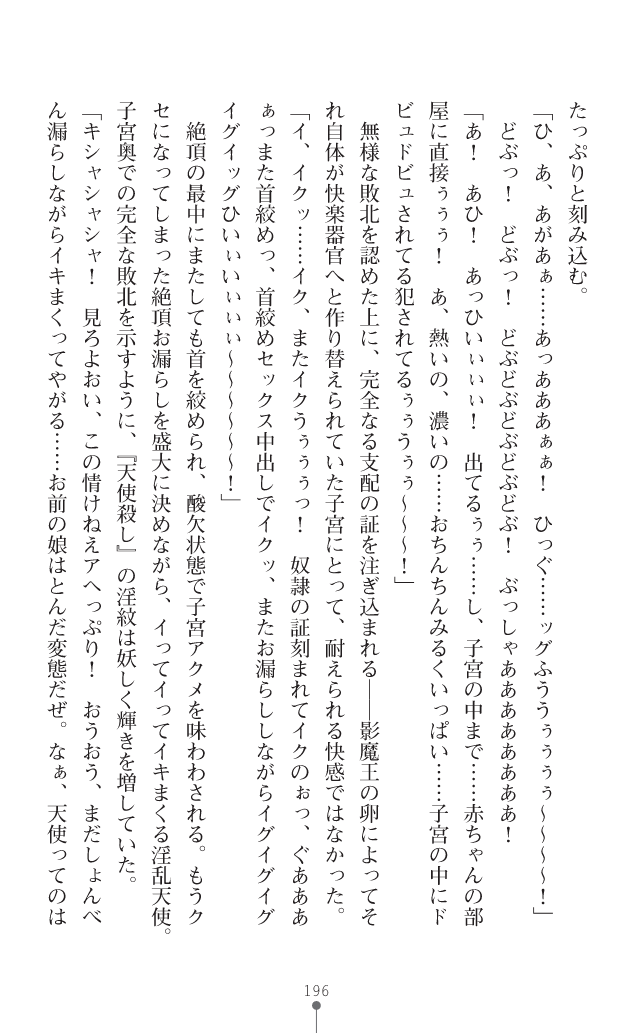 たっぷりと刻み込む。
「ひ、あ、あがあぁ……あっあああぁぁ！　ひっぐ……ッグふううぅぅぅぅ～～～～！」
　どぶっ！　どぶっ！　どぶどぶどぶどぶどぶ！　ぶっしゃああああああああ！
「あ！　あひ！　あっひいぃぃぃ！　出てるぅぅ……し、子宮の中まで……赤ちゃんの部
屋に直接ぅぅぅ！　あ、熱いの、濃いの……おちんちんみるくいっぱい……子宮の中にド
ビュドビュされてる犯されてるぅぅうぅぅ～～～～！」
　無様な敗北を認めた上に、完全なる支配の証を注ぎ込まれる――影魔王の卵によってそ
れ自体が快楽器官へと作り替えられていた子宮にとって、耐えられる快感ではなかった。
「イ、イクッ……イク、またイクうぅぅぅっ！　奴隷の証刻まれてイクのぉっ、ぐあああ
ぁっまた首絞めっ、首絞めセックス中出しでイクッ、またお漏らししながらイグイグイグ
イグイッグひいぃいぃぃぃ～～～～～～！」
　絶頂の最中にまたしても首を絞められ、酸欠状態で子宮アクメを味わわされる。もうク
セになってしまった絶頂お漏らしを盛大に決めながら、イってイってイキまくる淫乱天使。
子宮奥での完全な敗北を示すように、『天使殺し』の淫紋は妖しく輝きを増していた。
「キシャシャシャ！　見ろよおい、この情けねえアヘっぷり！　おうおう、まだしょんべ
ん漏らしながらイキまくってやがる……お前の娘はとんだ変態だぜ。なぁ、天使ってのは
196